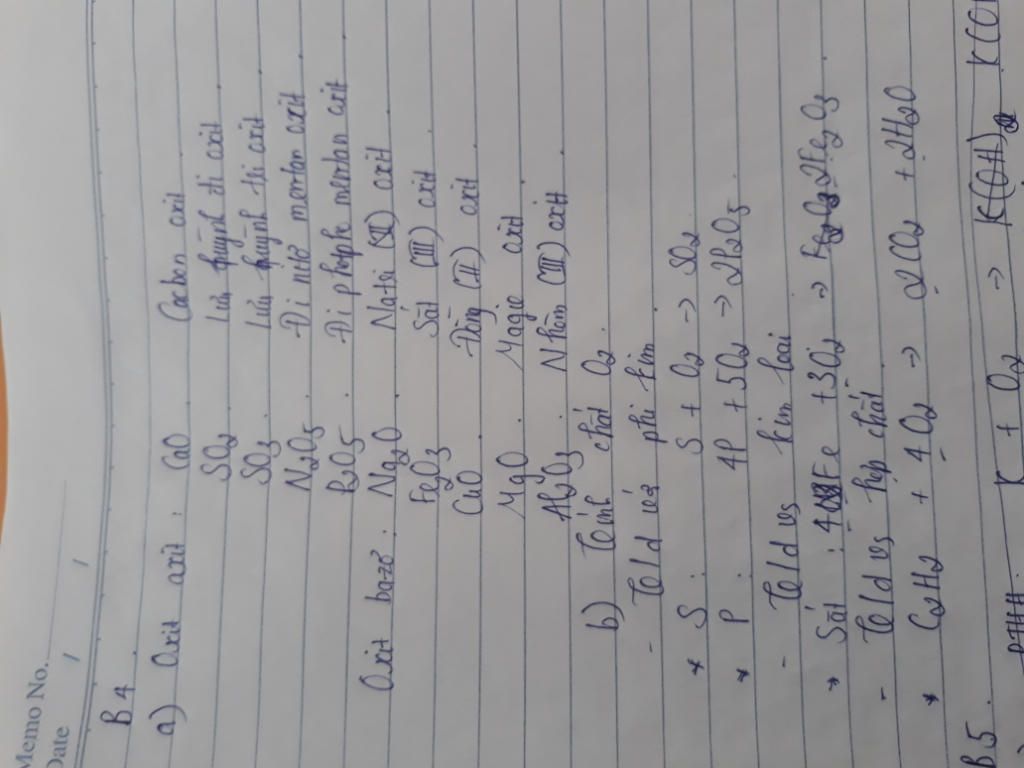 Memo No.
Date / /
B.4
a) Oxit axit : CaO Cacbon oxit
SO2 Lưu huỳnh đi oxit
SO3 Lưu huỳnh tri oxit
N2O5 Đi nitơ mentan oxit
P2O5 Đi photpho mentan oxit
Oxit bazơ : Na2O Natri (II) oxit
Fe2O3 Sắt (III) oxit
CuO Đồng (II) oxit
MgO Magie oxit
Al2O3 Nhôm (III) oxit
b) Tính chất O2
- Td với phi kim
* S : S + O2 -> SO2
* P : 4P + 5O2 -> 2P2O5
- Td vs kim loại
* Sắt : 4Fe + 3O2 -> 2Fe2O3
- Td vs hợp chất
* C2H2 + 4O2 -> 2CO2 + 2H2O
B5 PTHH : K + O2 -> K(OH)2